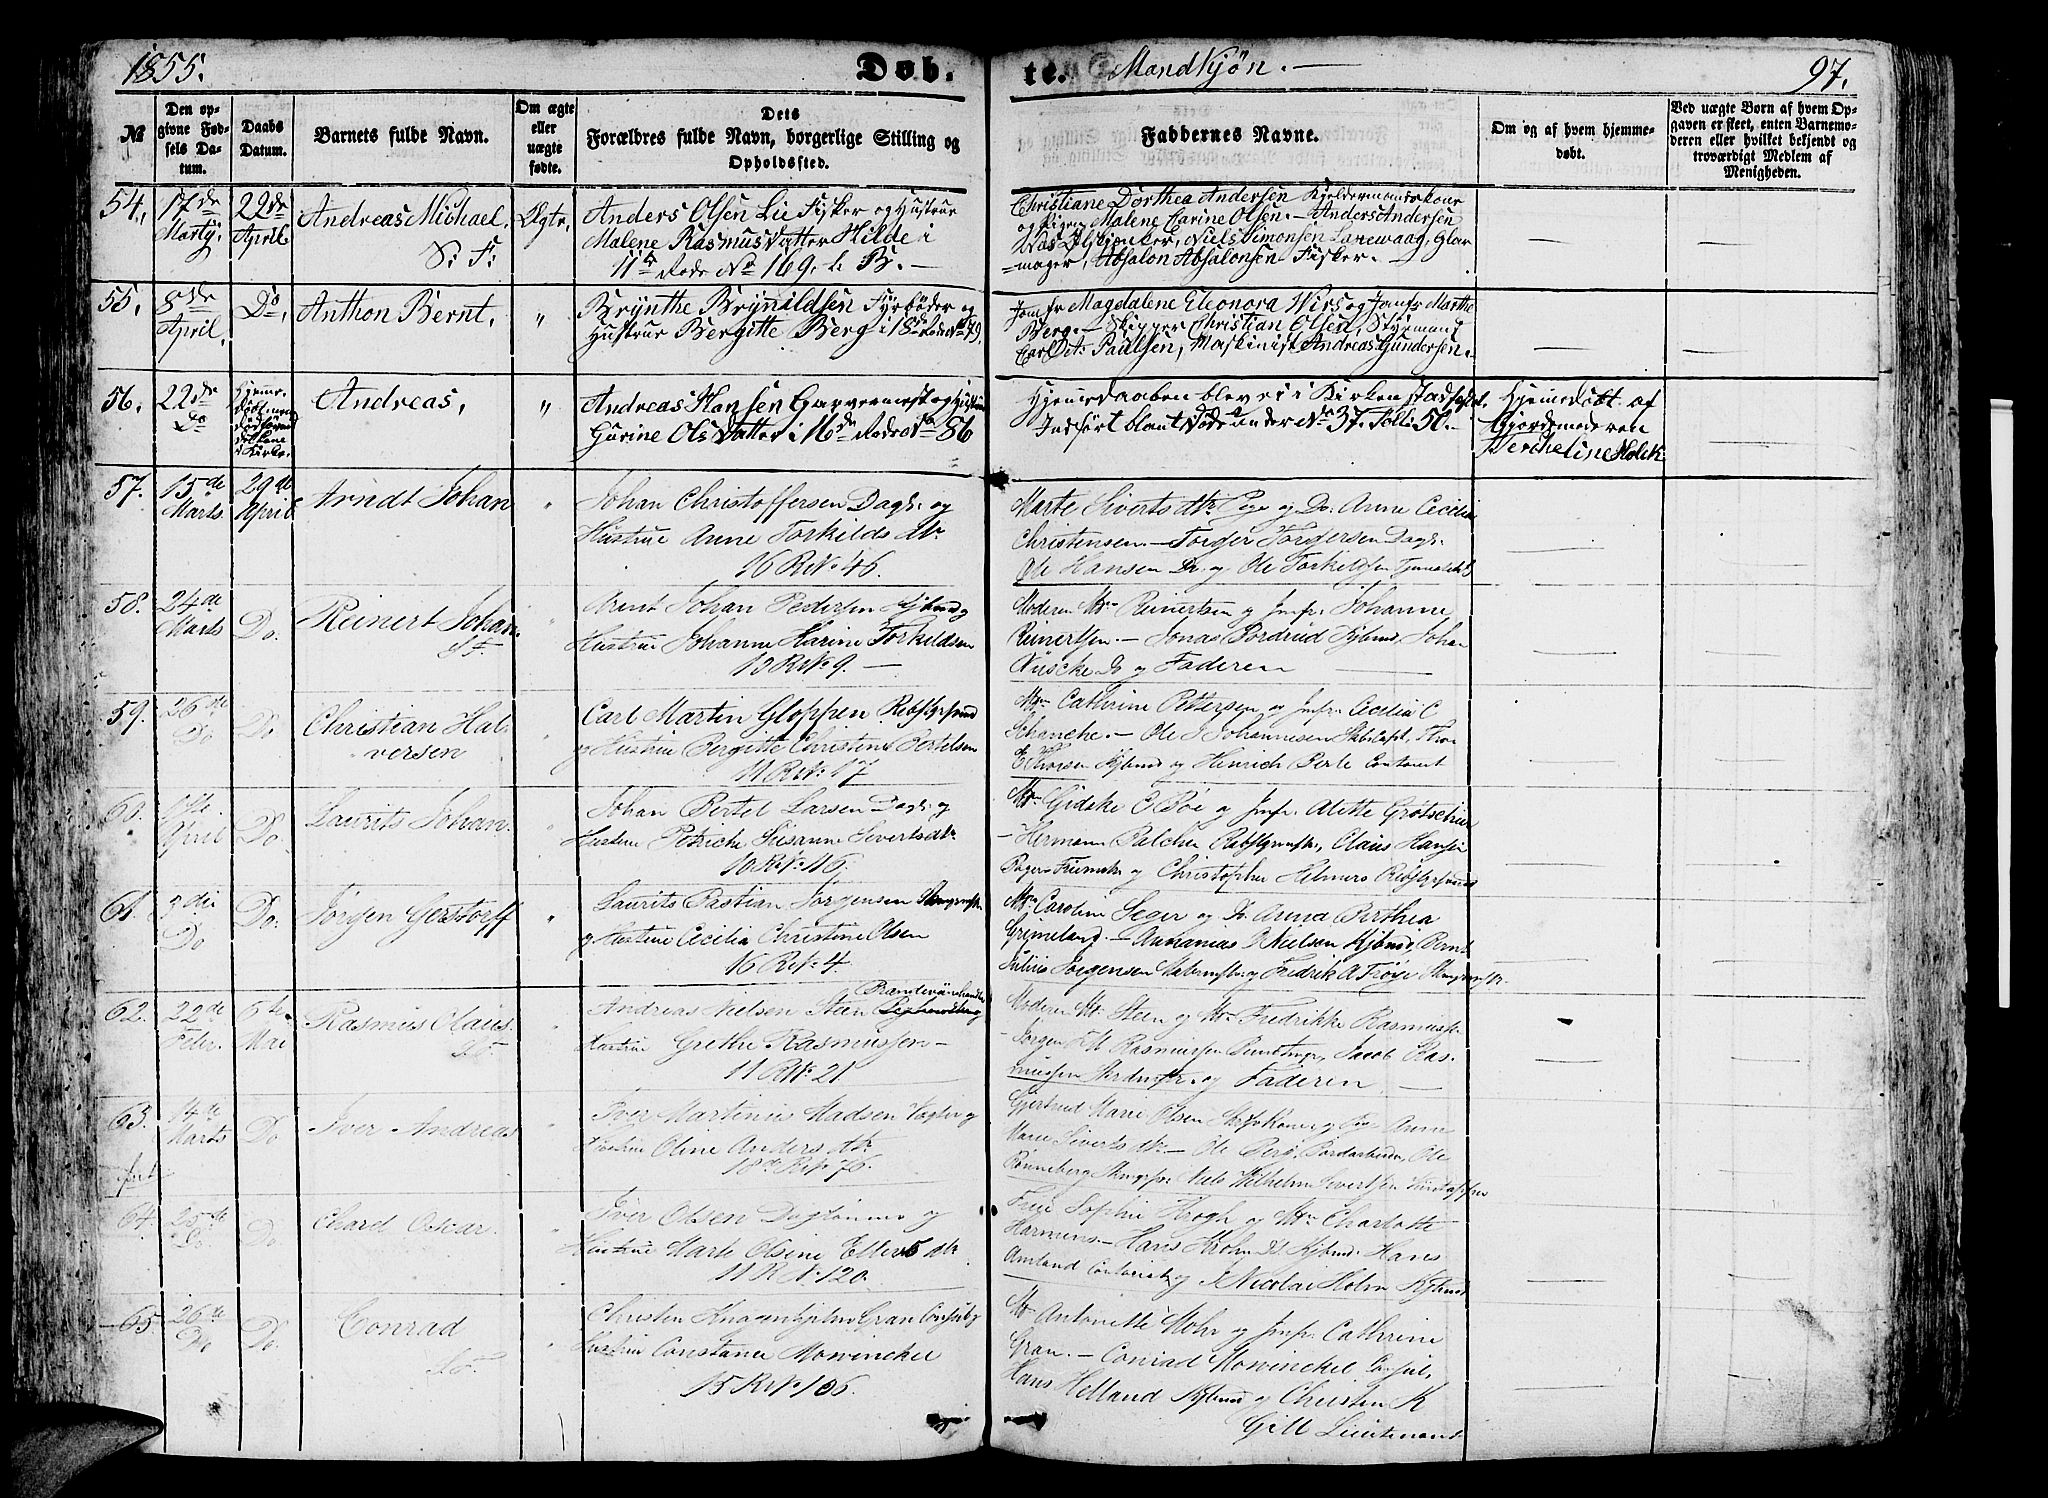 1855. Døb- te. Mandkjøn. — 97.
№ Den opgivne Fødsels Datum. Daabs Datum. Barnets fulde Navn. Om ægte eller uægte fødte. Dets Forældres fulde Navn, borgerlige Stilling og Opholdssted. Faddernes Navne. Om og af hvem hjemmedøbt. Ved uægte Børn af hvem Opgaven er skeet, enten Barnemoderen eller hvilket bekjendt og troværdigt Medlem af Menigheden.
54. 17de Marty. 22de April. Andreas Michael. S: F: Ægte.
Anders Olsen Lie Fisker og Hustrue
Malene Rasmusdatter Hilde i
11te Rode No 169. L. B. —
Christiane Dorthea Andersen Kjeldermandskone
og Pigen Malene Carine Olsen. — Anders Andersen
Ølskjenker, Niels Simonsen Larewaag, Glar-
mager, Absalon Absalonsen Fisker. —
55. 8de April. Do. Anthon Bernt. "
Brynthe Brynildsen Fyrbøder og
Hustrue Bergitte Berg i 18de Rode No 79.
Jomfr Magdalene Eleonora Wiis og Jomfr Marthe
Berg. — Skipper Christian Olsen, Styrmand
Carl Paulsen, Maskinist Andreas Gundersen.
56. 22de Do Andreas, "
Andreas Hansen og Hustrue
Gurine Olsdatter i 16de Rode No 86
Hjemedaaben blev ei i Kirken stadfæstet.
Indført blant Døde under No 37. Folio 50. —
Hjemedøbt af
Gjordemoderen
Holck
57. 15de Marts 29de April Arndt Johan "
Johan Christoffersen Dagl. og
Hustrue Anne Torkildsdtr
16 R No 46.
Marte Sivertsdtr Pige og Do. Anne Cecilia
Christensen. — Torger Torgersen Dagl.
Ole Hansen Do. og Ole Torkildsen
58. 24de Marts Do. Reinert Johan. S.F.
Arent Johan Pedersen Kjbmd og
Hustrue Johanne Marine Torkildsen
12 R No 9. —
Moderen, Md. Reinertsen og Jmfr. Johanne
Reinertsen. — Jonas Kjbmd, Johan
Do og Faderen
59. 26de Do Do Christian Halversen
Carl Martin Gloppen Rebslgrsvnd
og Hustrue Bergitte Christense Bertelsen
11 R No 17
Md. Cathrine Pettersen og Jmfr. Cecilia C
Schancke. — Ole J Johannesen Skibscapt, Thor
E Thorsen Kjbmd og Henrich Berle Contorist
60. 1ste April Do. Laurits Johan.
Johan Bertel Larsen Dagl. og
Hustrue Petriche Susanne Sivertsdtr
10 R No 116.
Md. Gidske E Bøe og Jmfr. Alette
— Hermann Balchen Rebslgrmstr., Claus Hansen
og Christopher Helmers Rebslgrsvnd
61. 3die Do Do. Jørgen Gerstorff "
Laurits Bastian Jørgensen
og Hustrue Cecilia Christine Olsen
16 R No 4.
Md. Caroline Seger og D. Anna Berthea
Grimeland. — Annanias D Nielsen Kjbmd, Bernt
Julius Jørgensen og Fredrik A Trøye
62. 22de Febr. 6te Mai Rasmus Olaus. S.F.
Andreas Nielsen Steen Brændeviinshandler
Hustrue Grethe Rasmussen —
11 R No 21.
Moderen, Md. Steen og Md. Fredrikke Rasmussen
— Jørgen F M Rasmussen Jacob Ras-
mussen og Faderen —
63. 14de Marts Do Iver Andreas
Iver Martinus Madsen og
Hustrue Oline Andersdtr
18de R No 76.
Gjertrud Marie Olsen og Pige Anne
Marie Sivertsdtr — Ole Ole
Rønneberg Niels Wilhelm Sivertsen
64. 25de Do. Do. Chard Oscar.
Iver Olsen og
Hustrue Marte Olsine Ellertsdtr.
11 R No 120.
Frue Sophie Krogh og Md. Charlotte
Harmens. — Hans Krohn Kjbmd. Hans
Amland Contorist og J Nicolai Holm Kjbmd
65. 26de Do Do. Conrad S.F.
Christen Knag Gran Consul og
Hustrue Constance Mowinckel
15 R No 106.
Md. Antonette Mohr og Jmfr. Cathrine
Gran. — Conrad Mowinckel Consul,
Hans Helland Kjbmd og Christen K
Gill Lieutenant